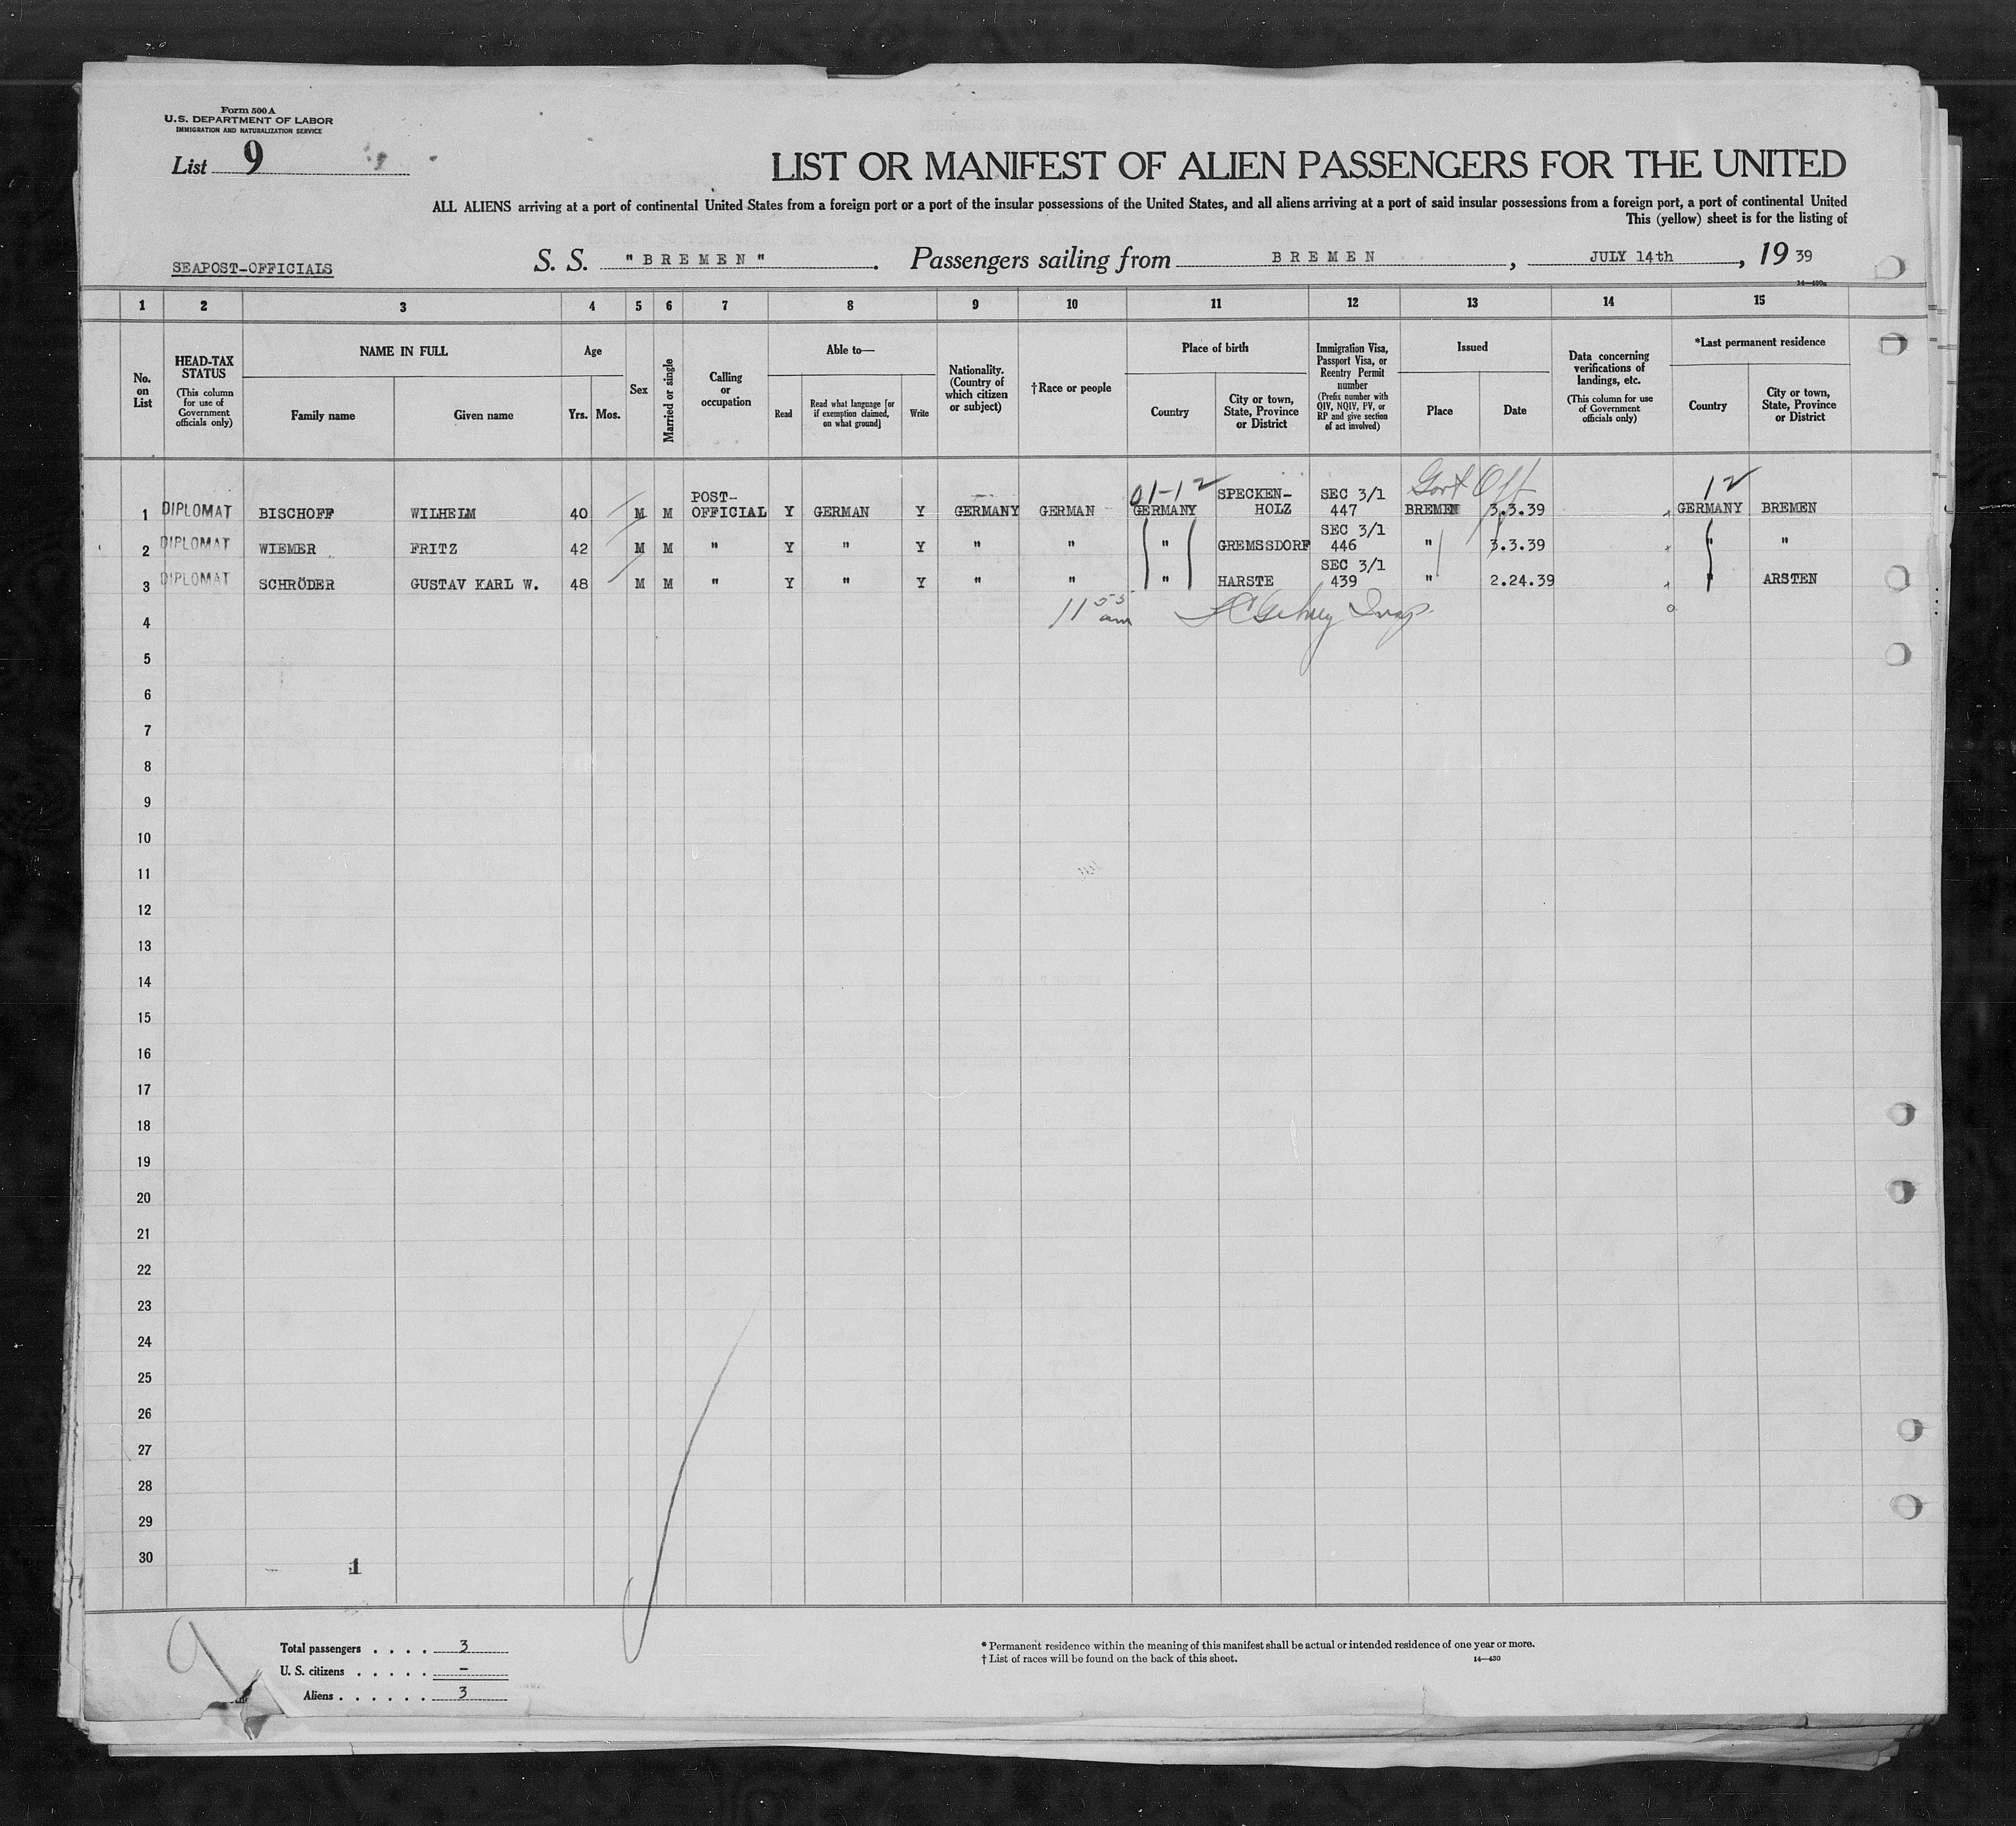 Form 500 A
U.S. DEPARTMENT OF LABOR
IMMIGRATION AND NATURALIZATION SERVICE
List 9
LIST OR MANIFEST OF ALIEN PASSENGERS FOR THE UNITED
ALL ALIENS arriving at a port of continental United States from a foreign port or a port of the insular possessions of the United States, and all aliens arriving at a port of said insular possessions from a foreign port, a port of continental United
This (yellow) sheet is for the listing of
SEAPOST-OFFICIALS S. S. "BREMEN". Passengers sailing from BREMEN, JULY 14th, 19 39
14—430a
1 2 3 4 5 6 7 8 9 10 11 12 13 14 15
No. on List
HEAD-TAX STATUS (This column for use of Government officials only)
NAME IN FULL
Family name Given name
Age
Yrs. Mos.
Sex
Married or single
Calling or occupation
Able to—
Read
Read what language [or if exemption claimed, on what ground]
Write
Nationality. (Country of which citizen or subject)
†Race or people
Place of birth
Country
City or town, State, Province or District
Immigration Visa, Passport Visa, or Reentry Permit number (Prefix number with QIV, NQIV, PV, or RP and give section of act involved)
Issued
Place Date
Data concerning verifications of landings, etc. (This column for use of Government officials only)
*Last permanent residence
Country
City or town, State, Province or District
01-12 Govt Off 12
1 DIPLOMAT BISCHOFF WILHELM 40 M M POST-OFFICIAL Y GERMAN Y GERMANY GERMAN GERMANY SPECKEN-HOLZ SEC 3/1 447 BREMEN 3.3.39 GERMANY BREMEN
2 DIPLOMAT WIEMER FRITZ 42 M M " Y " Y " " " GREMSSDORF SEC 3/1 446 " 3.3.39 " "
3 DIPLOMAT SCHRÖDER GUSTAV KARL W. 48 M M " Y " Y " " " HARSTE SEC 3/1 439 " 2.24.39 " ARSTEN
4 11 55 am Insp.
5
6
7
8
9
10
11
12
13
14
15
16
17
18
19
20
21
22
23
24
25
26
27
28
29
30
1
9
Total passengers . . . . 3
U. S. citizens . . . . . –
Aliens . . . . . . 3
* Permanent residence within the meaning of this manifest shall be actual or intended residence of one year or more.
† List of races will be found on the back of this sheet.
14—430